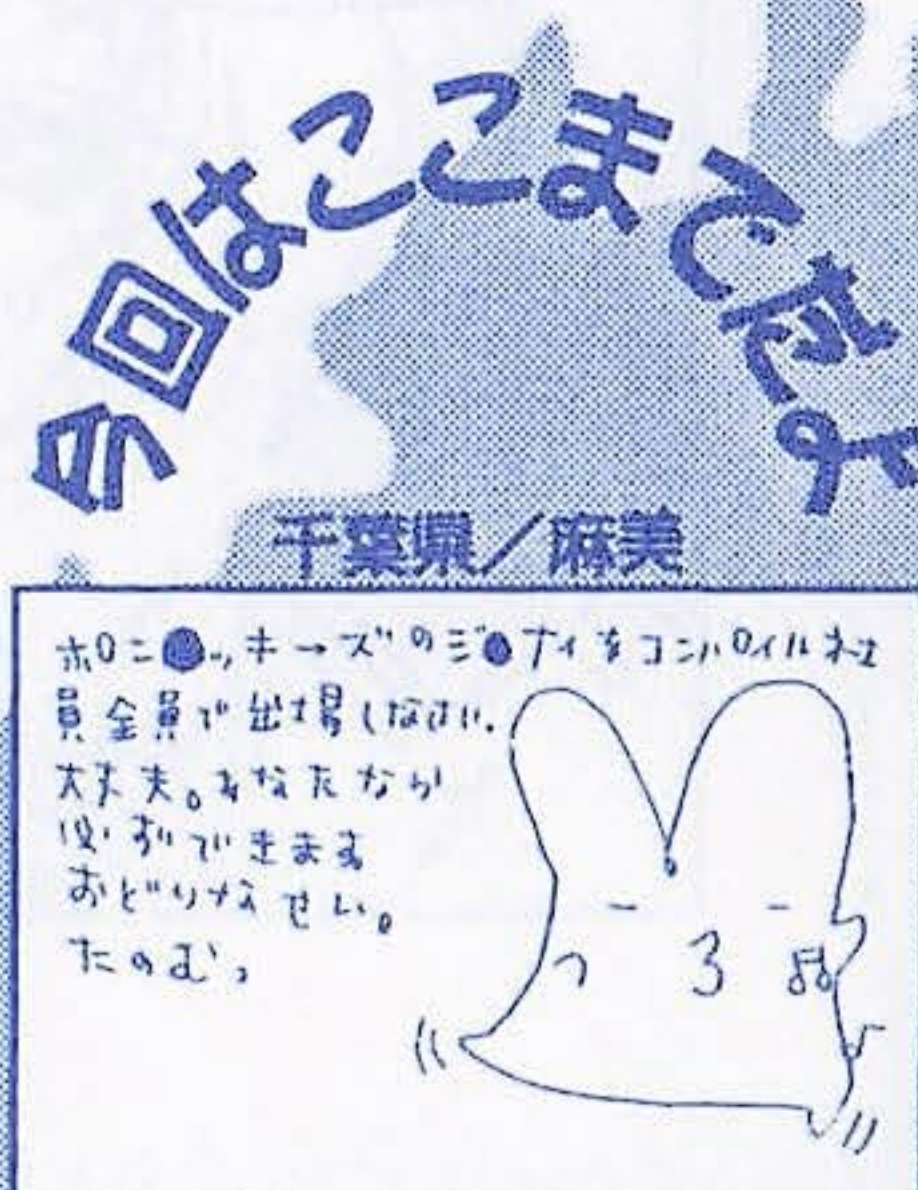 今回はここまでだよ
千葉県／麻美
ポロニ●ッキーズのジ●ナイをコンパイル社
員全員で出場しなさい.
大丈夫。あなたなら
必ずできます
おどりなせい。
たのむっ